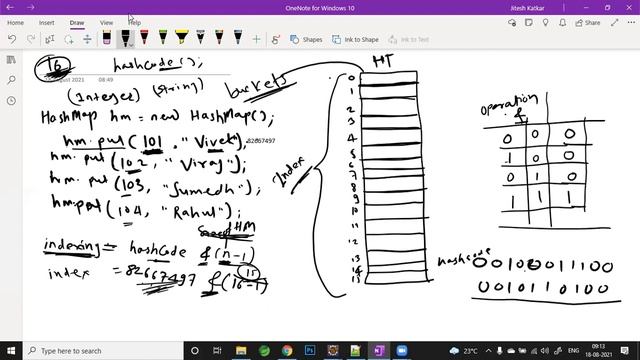 OneNote for Windows 10
Jitesh Katkar
Home Insert Draw View Help
Shapes Ink to Shape Ink to Text
16 hashcode();
August 2021 08:49
(Integer) (string)
HashMap hm = new HashMap();
hm.put(101, "Vivek"); 82667497
hm.put (102, "Viraj");
hm.put (103, "Sumedh");
hm.put (104, "Rahul");
HM
indexing = hashCode & (n-1)
15
index = 82667497 & (16-1)
buckets
HT
Index
0
1
2
3
4
5
6
7
8
9
10
11
12
13
14
15
operation
&
0 0 0
1 0 0
0 1 0
1 1 1
hashcode
0010000 11100
001011 0100
23°C ENG 09:13
18-08-2021